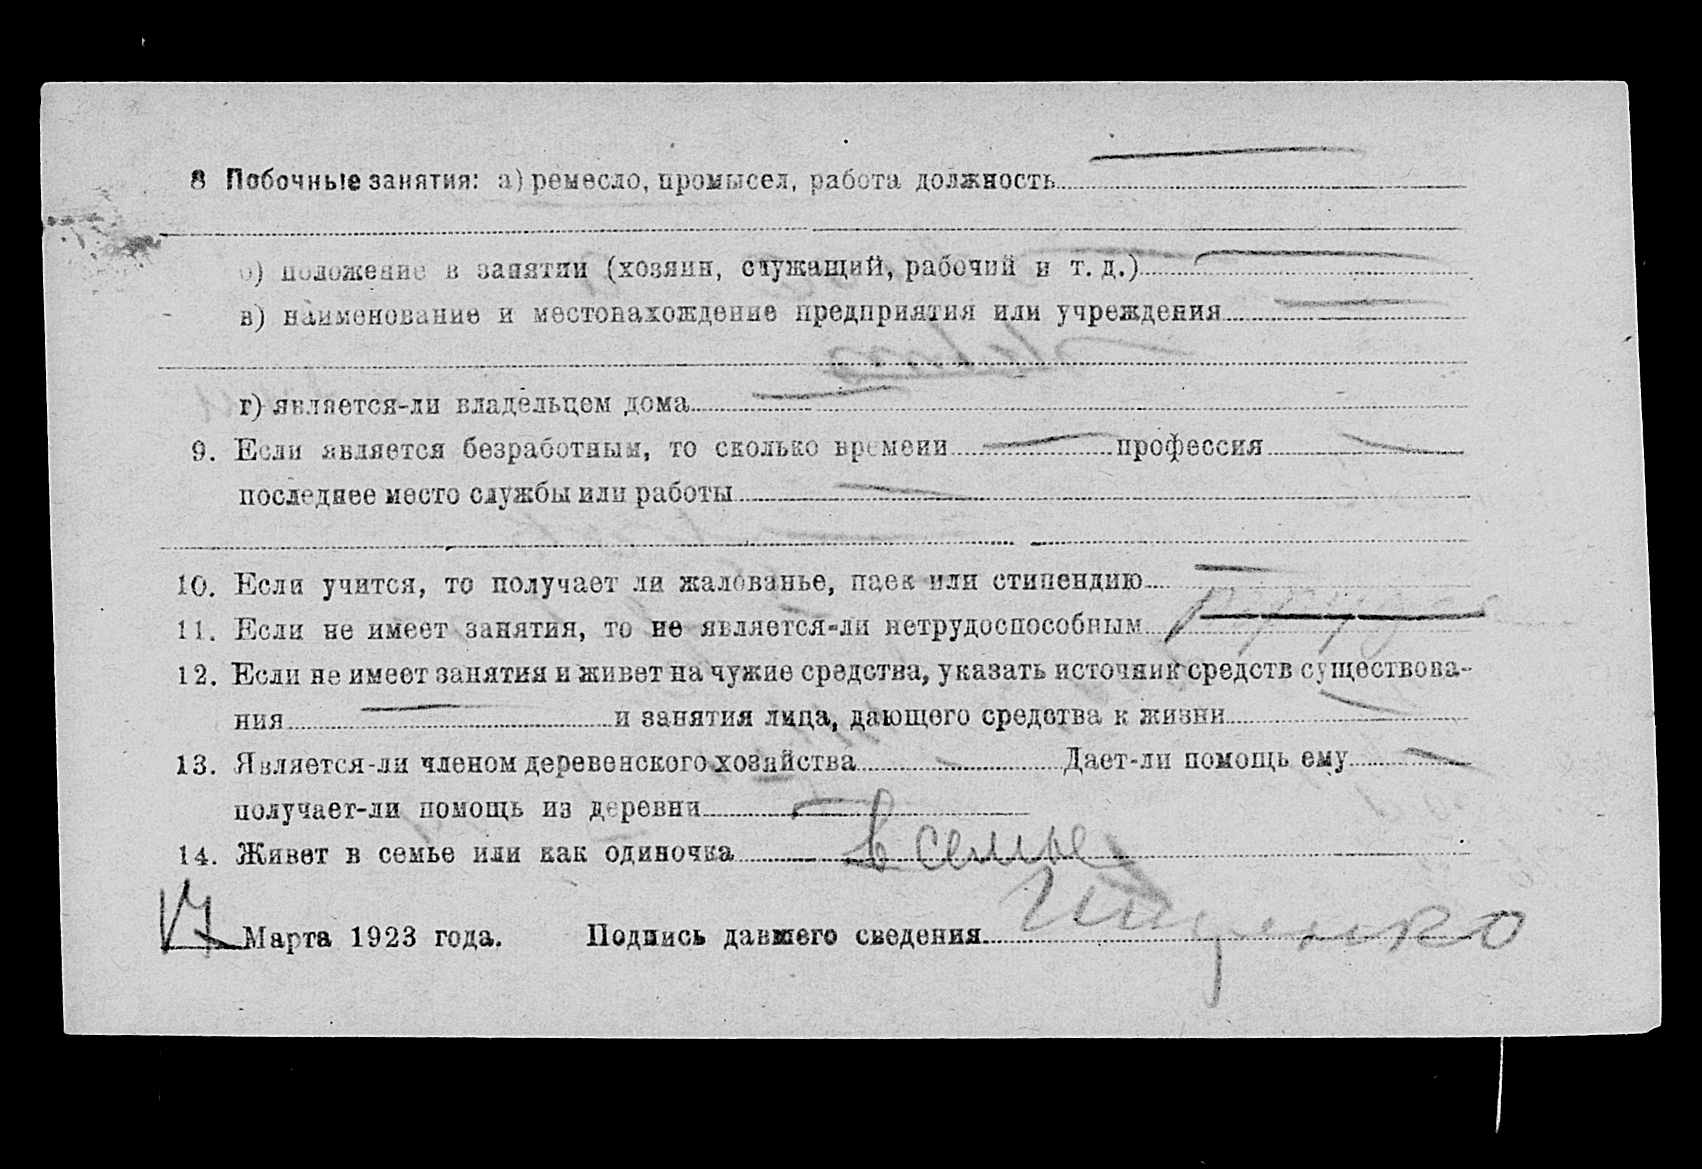 8 Побочные занятия: а) ремесло, промысел, работа должность
б) положение в занятии (хозяин, служащий, рабочий и т. д.)
в) наименование и местонахождение предприятия или учреждения
г) является-ли владельцем дома
9. Если является безработным, то сколько времени профессия
последнее место службы или работы
10. Если учится, то получает ли жалованье, паек или стипендию
11. Если не имеет занятия, то не является-ли нетрудоспособным
12. Если не имеет занятия и живет на чужие средства, указать источник средств существова-
ния и занятия лица, дающего средства к жизни
13. Является-ли членом деревенского хозяйства Дает-ли помощь ему
получает-ли помощь из деревни
14. Живет в семье или как одиночка в семье
17 Марта 1923 года. Подпись давшего сведения Ищенко